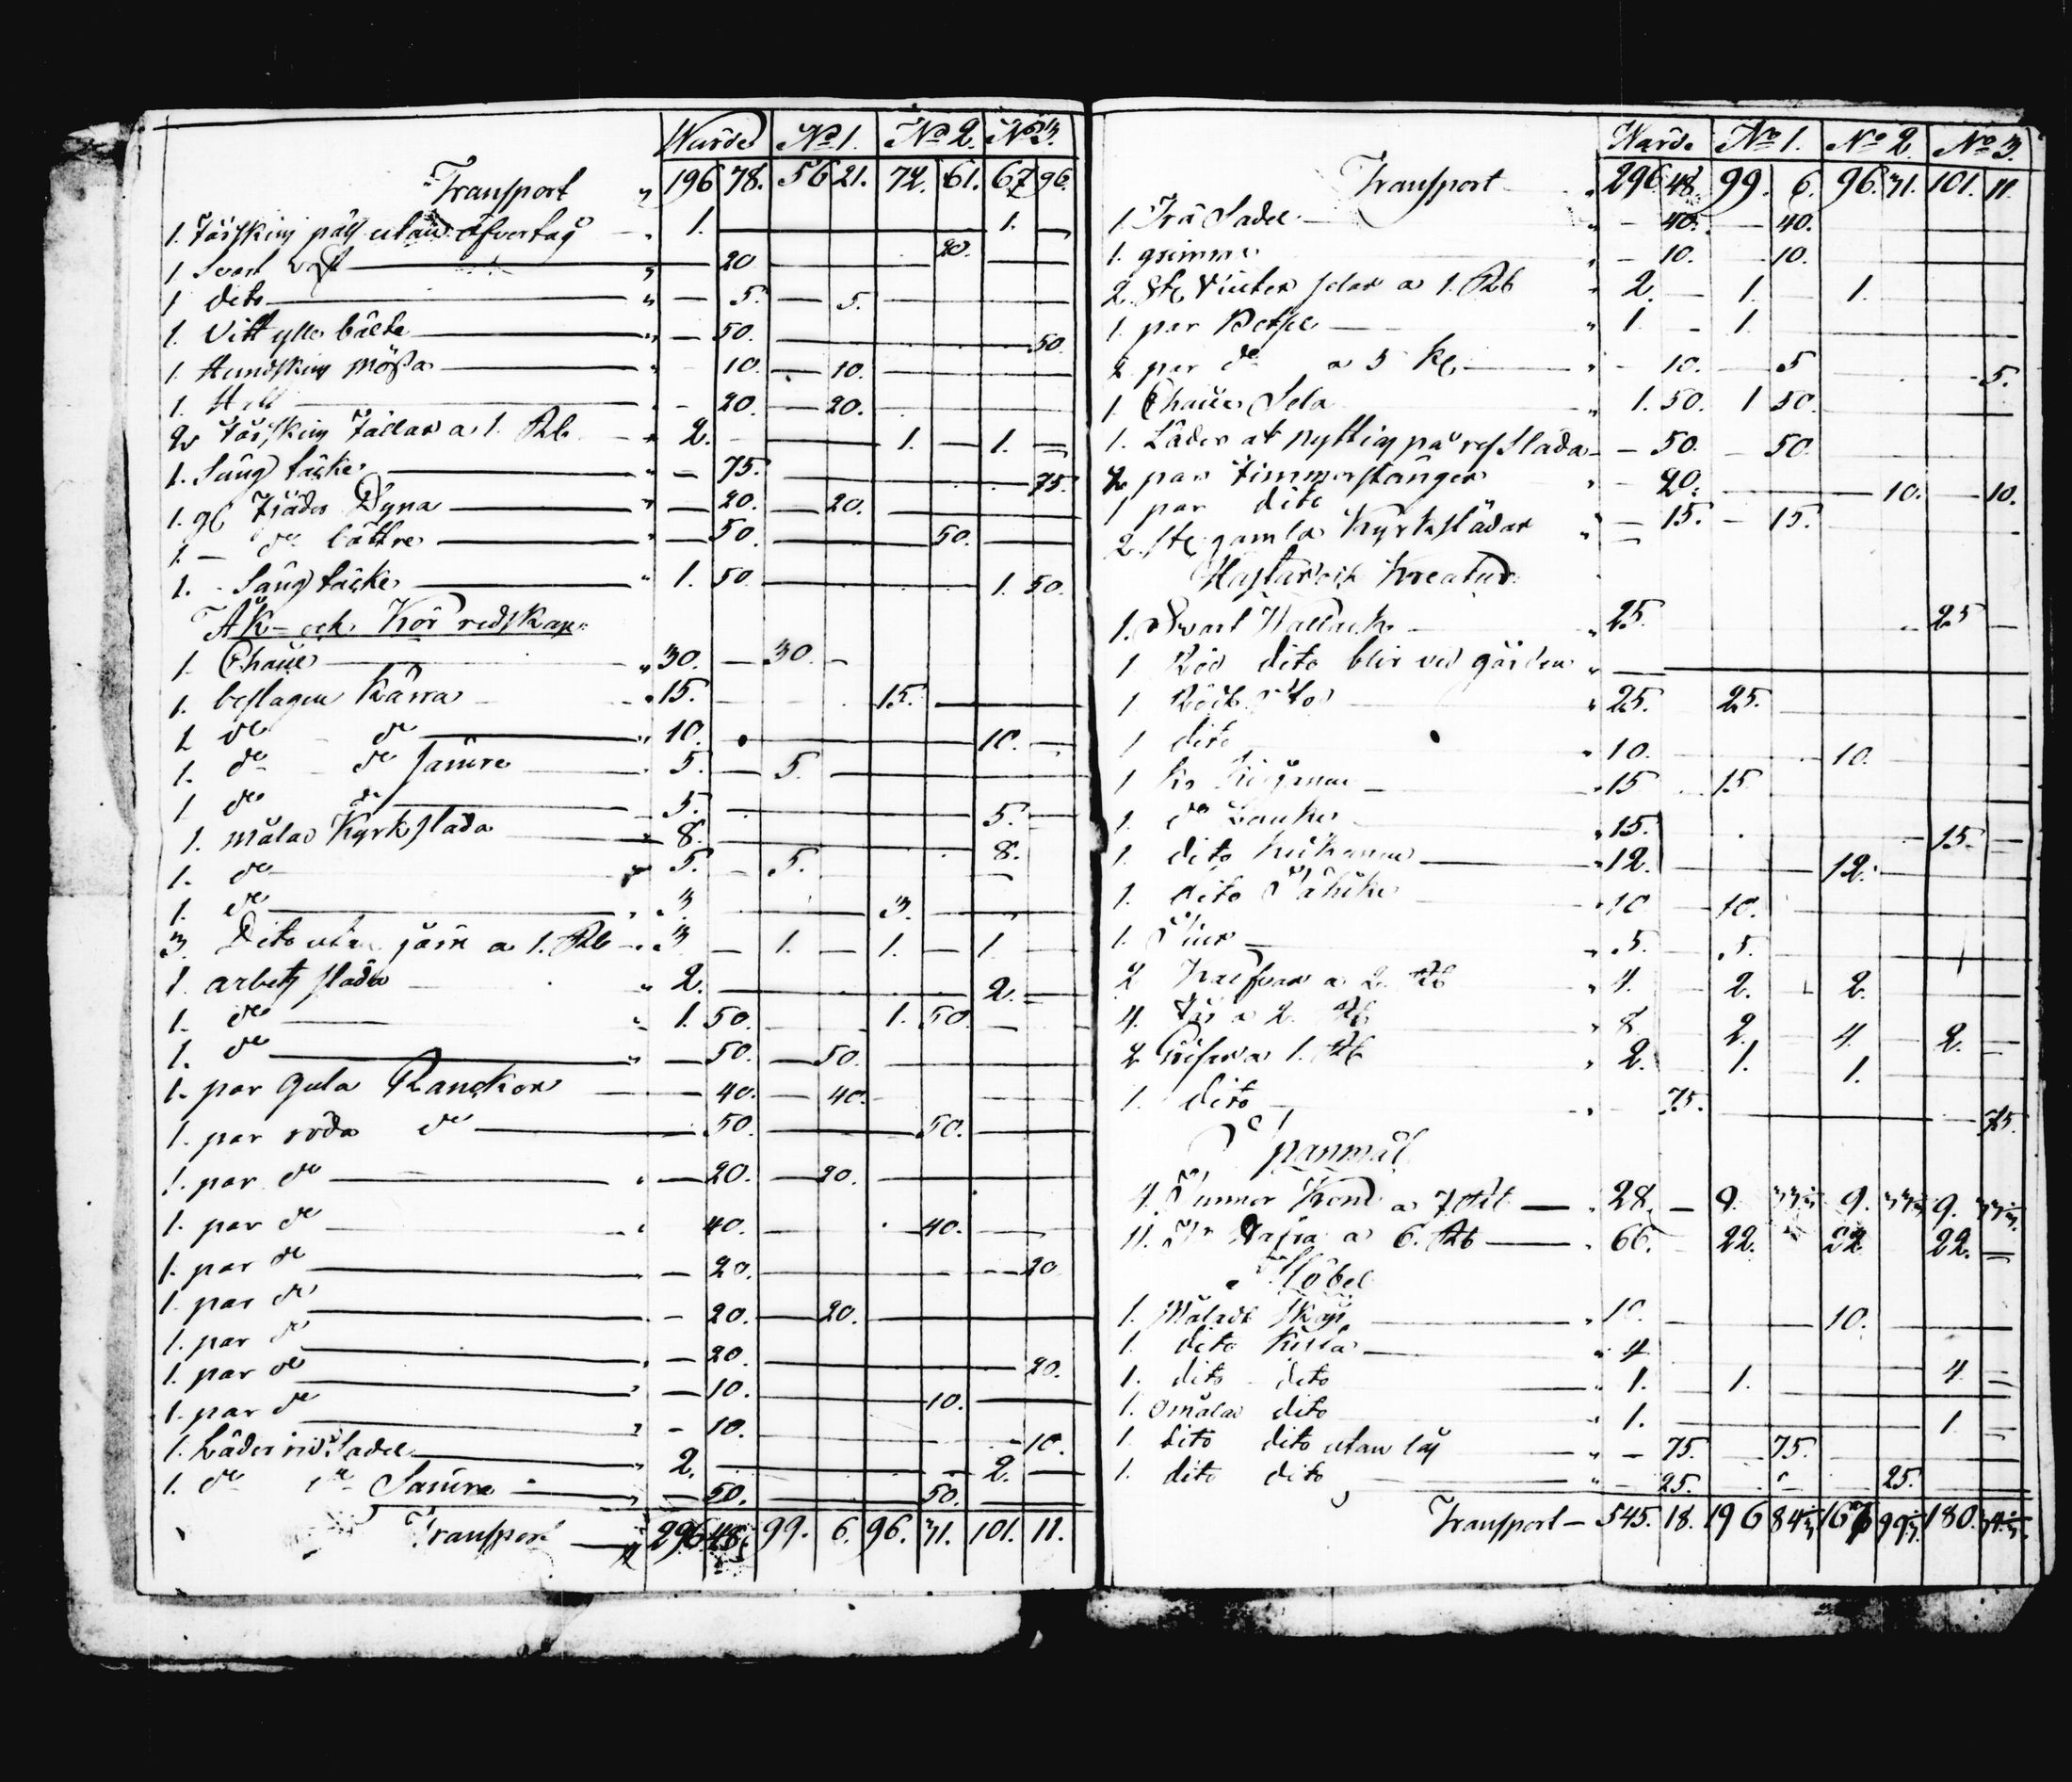 Wärde No 1. No 2. No 3.
Transport " 196 78. 56 21. 72. 61. 67 96.
1. Fårskins päls utan öfvertag " 1. — 1. —
1 Svart väst " 20 20.
1 dito " — 5. — 5.
1. Vitt ylle bälte " — 50. 50.
1. Hundskins mössa 10. — 10.
1. 20. — 20.
2 Fårskins Fällar a 1. Rb. 2. — 1. — 1. —
1. Säng täcke " — 75. 75.
1. gl Fjäder Dyna " — 20. — 20.
1. — do bättre — 50. 50.
1. Säng täcke " 1. 50. 1. 50.
Åk- och Kör redskap.
1. Chäue " 30. — 30. —
1. beslagen Kärra " 15. 15.
1 do do " 10. 10. —
1. do do sämre 5. — 5.
1 do do 5. 5. —
1. målad Kyrkslåda " 8. 8.
1. do 5. — 5.
1. do " 3. 3.
3. Dito utan järn a 1. Rb " 3 — 1. — 1. — 1.
1. arbets släda " 2. 2. —
1. do " 1. 50. 1. 50.
1. do " — 50. — 50.
1. par gula Ranckor — 40. — 40.
1. par röda do 50. 50.
1. par do " — 20. — 20.
1. par do " 40. 40.
1. par do — 20. 20
1. par do — 20. — 20.
1. par do — 20. 20.
1. par do " — 10. 10.
1. par do " — 10. 10.
1. Läder rid Sadel " 2. 2. —
1. do do Sämre " — 50. 50.
Transport — 296 48. 99. 6. 96. 31. 101. 11.
Wärde No 1. No 2. No 3.
Transport " 296 48. 99. 6. 96. 31. 101. 11.
1 Trä Sadel " — 40. — 40.
1. grimma " — 10. — 10.
2 ste Vinter selar a 1. Rb " 2. — 1. — 1.
1. par Betsel " 1. — 1.
2 par do a 5 K. " — 10. — 5 — 5.
1 Chäue Sela 1. 50. 1 50.
1. Läder at nyttig på res Släda — 50. — 50.
2 par timmerstänger " — 20. — 10. — 10.
1 par dito — 15. — 15.
2 ste gamla Kyrkslädar " —
Hästar och Kreatur
1. Svart Wallack " 25. 25 —
1 Röd dito blir vid gården " —
1 Röd Sto " 25. 25.
1 dito " 10. 10.
1 Ko " 15 15.
1. do " 15. 15. —
1. dito " 12. 12.
1. dito " 10 10.
1. Tiur " 5. 5.
2 Kalfvar a 2. Rb " 4. — 2. 2.
4. Får a 2. Rb " 8. 2. — 4. — 2. —
2 Grisar a 1. Rb " 2. 1. 1.
1. dito — 75. — 75.
Spanmål
4. Tunnor Korn a 7 Rb — " 28. — 9. 33⅓ 9. 33⅓ 9. 33⅓
11. Tr Rajra a 6. Rb — " 66. 22. 22 22. —
Möbel
1. Målade Skåp " 10. 10.
1. dito Kista " 4 4 —
1. dito dito " 1. 1.
1. omålad dito " 1. 1 —
1. dito dito utan lås " — 75. 75.
1. dito dito " — 25. 25.
Transport — 545. 18. 196 84⅓ 167 99⅓ 180. 34⅓